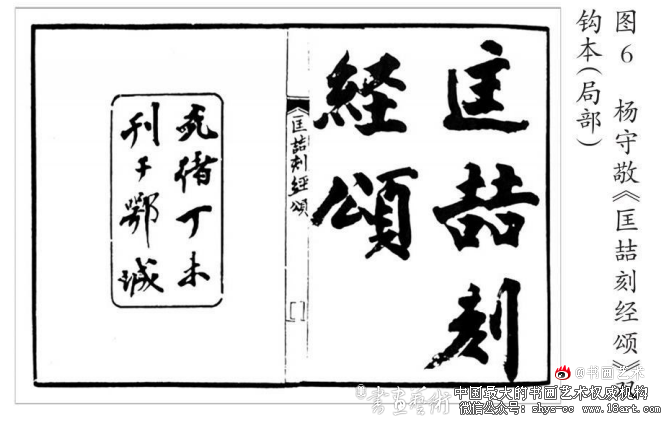 图6 杨守敬《匡喆刻经颂》双
钩本(局部)
匡喆刻
経頌
匡喆刻經頌
光緒丁未
刊于鄂城
@书画艺术
書畫藝術
中国最大的书画艺术权威机构
微信公众号:shys-cc www.18art.com